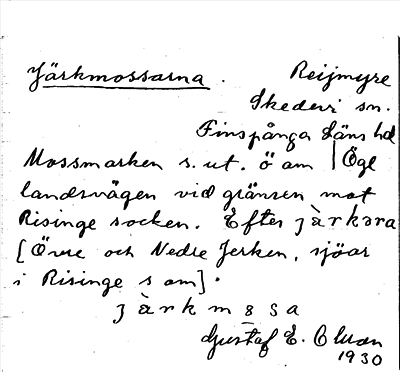 Järkmossarna. Reijmyre
Skedevi sn.
Finspånga Läns hd
Mossmarken s. ut. ö am | Ögl
landsvägen vid gränsen mot
Risinge socken. Efter jàrkəra
[Övre och Nedre Jerken, sjöar
i Risinge s am].
jàrkmosa
Gustaf E.
1930